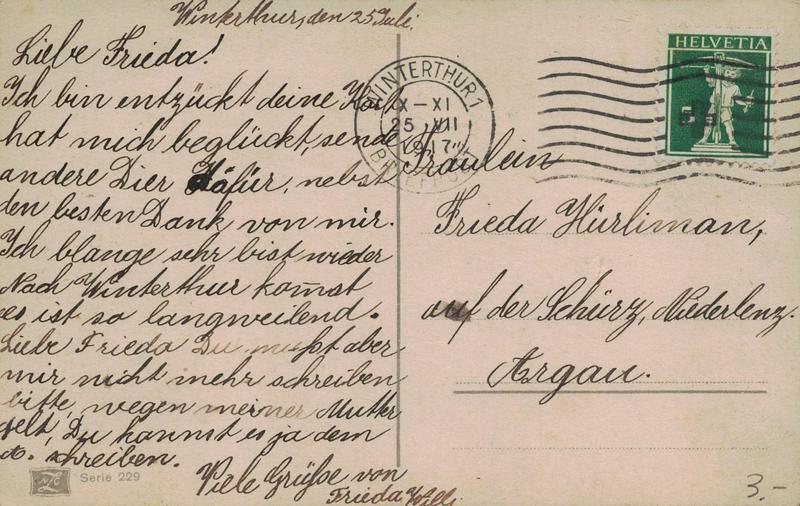 Winterthur, den 25 Juli.
Liebe Frieda!
Ich bin entzückt deine Kart
hat mich beglückt, sende
andere Dier dafür, nebst
den besten Dank von mir.
Ich blange sehr bist wieder
Nach Winterthur kom̄st
es ist so langweilend.
Liebe Frieda Du mußt aber
mir nicht mehr schreiben
bitte, wegen meiner Mutter
gelt, Du kannst es ja dem
A. schreiben.
Viele Grüße von
Frieda Willi
Serie 229
WINTERTHUR 1
X-XI
25 VII
1917
HELVETIA
5
Fräulein
Frieda Hürliman,
auf der Schürz, Niederlenz.
Argau.
3.-